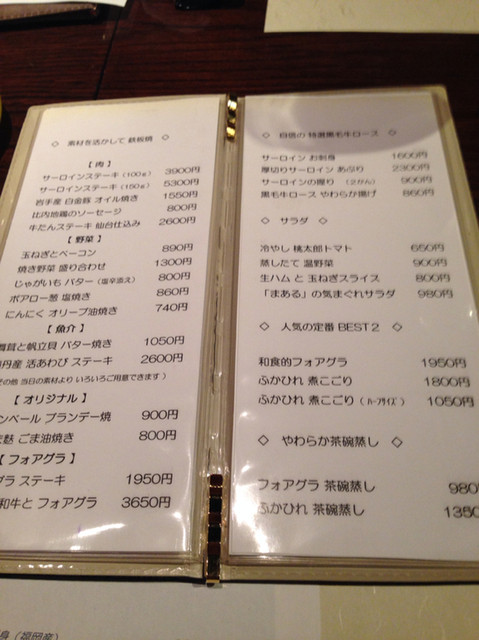 ◇ 素材を活かして 鉄板焼 ◇
【 肉 】
サーロインステーキ (100g) 3900円
サーロインステーキ (150g) 5300円
岩手産 白金豚 オイル焼き 1550円
比内地鶏のソーセージ 800円
牛たんステーキ 仙台仕込み 2600円
【 野菜 】
玉ねぎとベーコン 890円
焼き野菜 盛り合わせ 1300円
じゃがいも バター (塩辛添え) 800円
ポアロー葱 塩焼き 860円
にんにく オリーブ油焼き 740円
【 魚介 】
舞茸と帆立貝 バター焼き 1050円
産 活あわび ステーキ 2600円
その他 当日の素材より いろいろご用意できます )
【 オリジナル 】
ンベール ブランデー焼 900円
麩 ごま油焼き 800円
【 フォアグラ 】
グラ ステーキ 1950円
和牛と フォアグラ 3650円
◇ 自慢の 特選黒毛牛ロース ◇
サーロイン お刺身 1600円
厚切りサーロイン あぶり 2300円
サーロインの握り (2かん) 900円
黒毛牛ロース やわらか揚げ 860円
◇ サラダ ◇
冷やし 桃太郎トマト 650円
蒸したて 温野菜 900円
生ハム と 玉ねぎスライス 800円
「まある」の気まぐれサラダ 980円
◇ 人気の定番 BEST2 ◇
和食的フォアグラ 1950円
ふかひれ 煮こごり 1800円
ふかひれ 煮こごり ( ハーフサイズ ) 1050円
◇ やわらか茶碗蒸し ◇
フォアグラ 茶碗蒸し 980
ふかひれ 茶碗蒸し 1350
身 (福岡産)